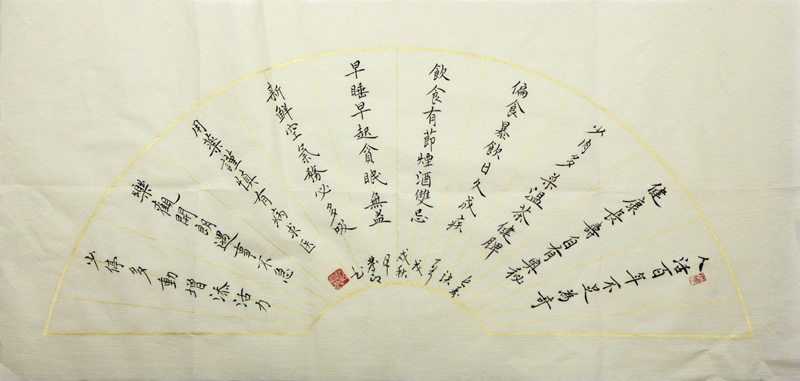 人活一百年不足為奇
健康長壽自有奧秘
少肉多菜溫茶健脾
偏食暴飲日久成疾
飲食有節煙酒雙忌
早睡早起貪眠無益
新鮮空氣務必多吸
用藥謹慎有病求医
樂觀開朗遇事不急
少停多動增添活力
長壽
戊戌秋
月